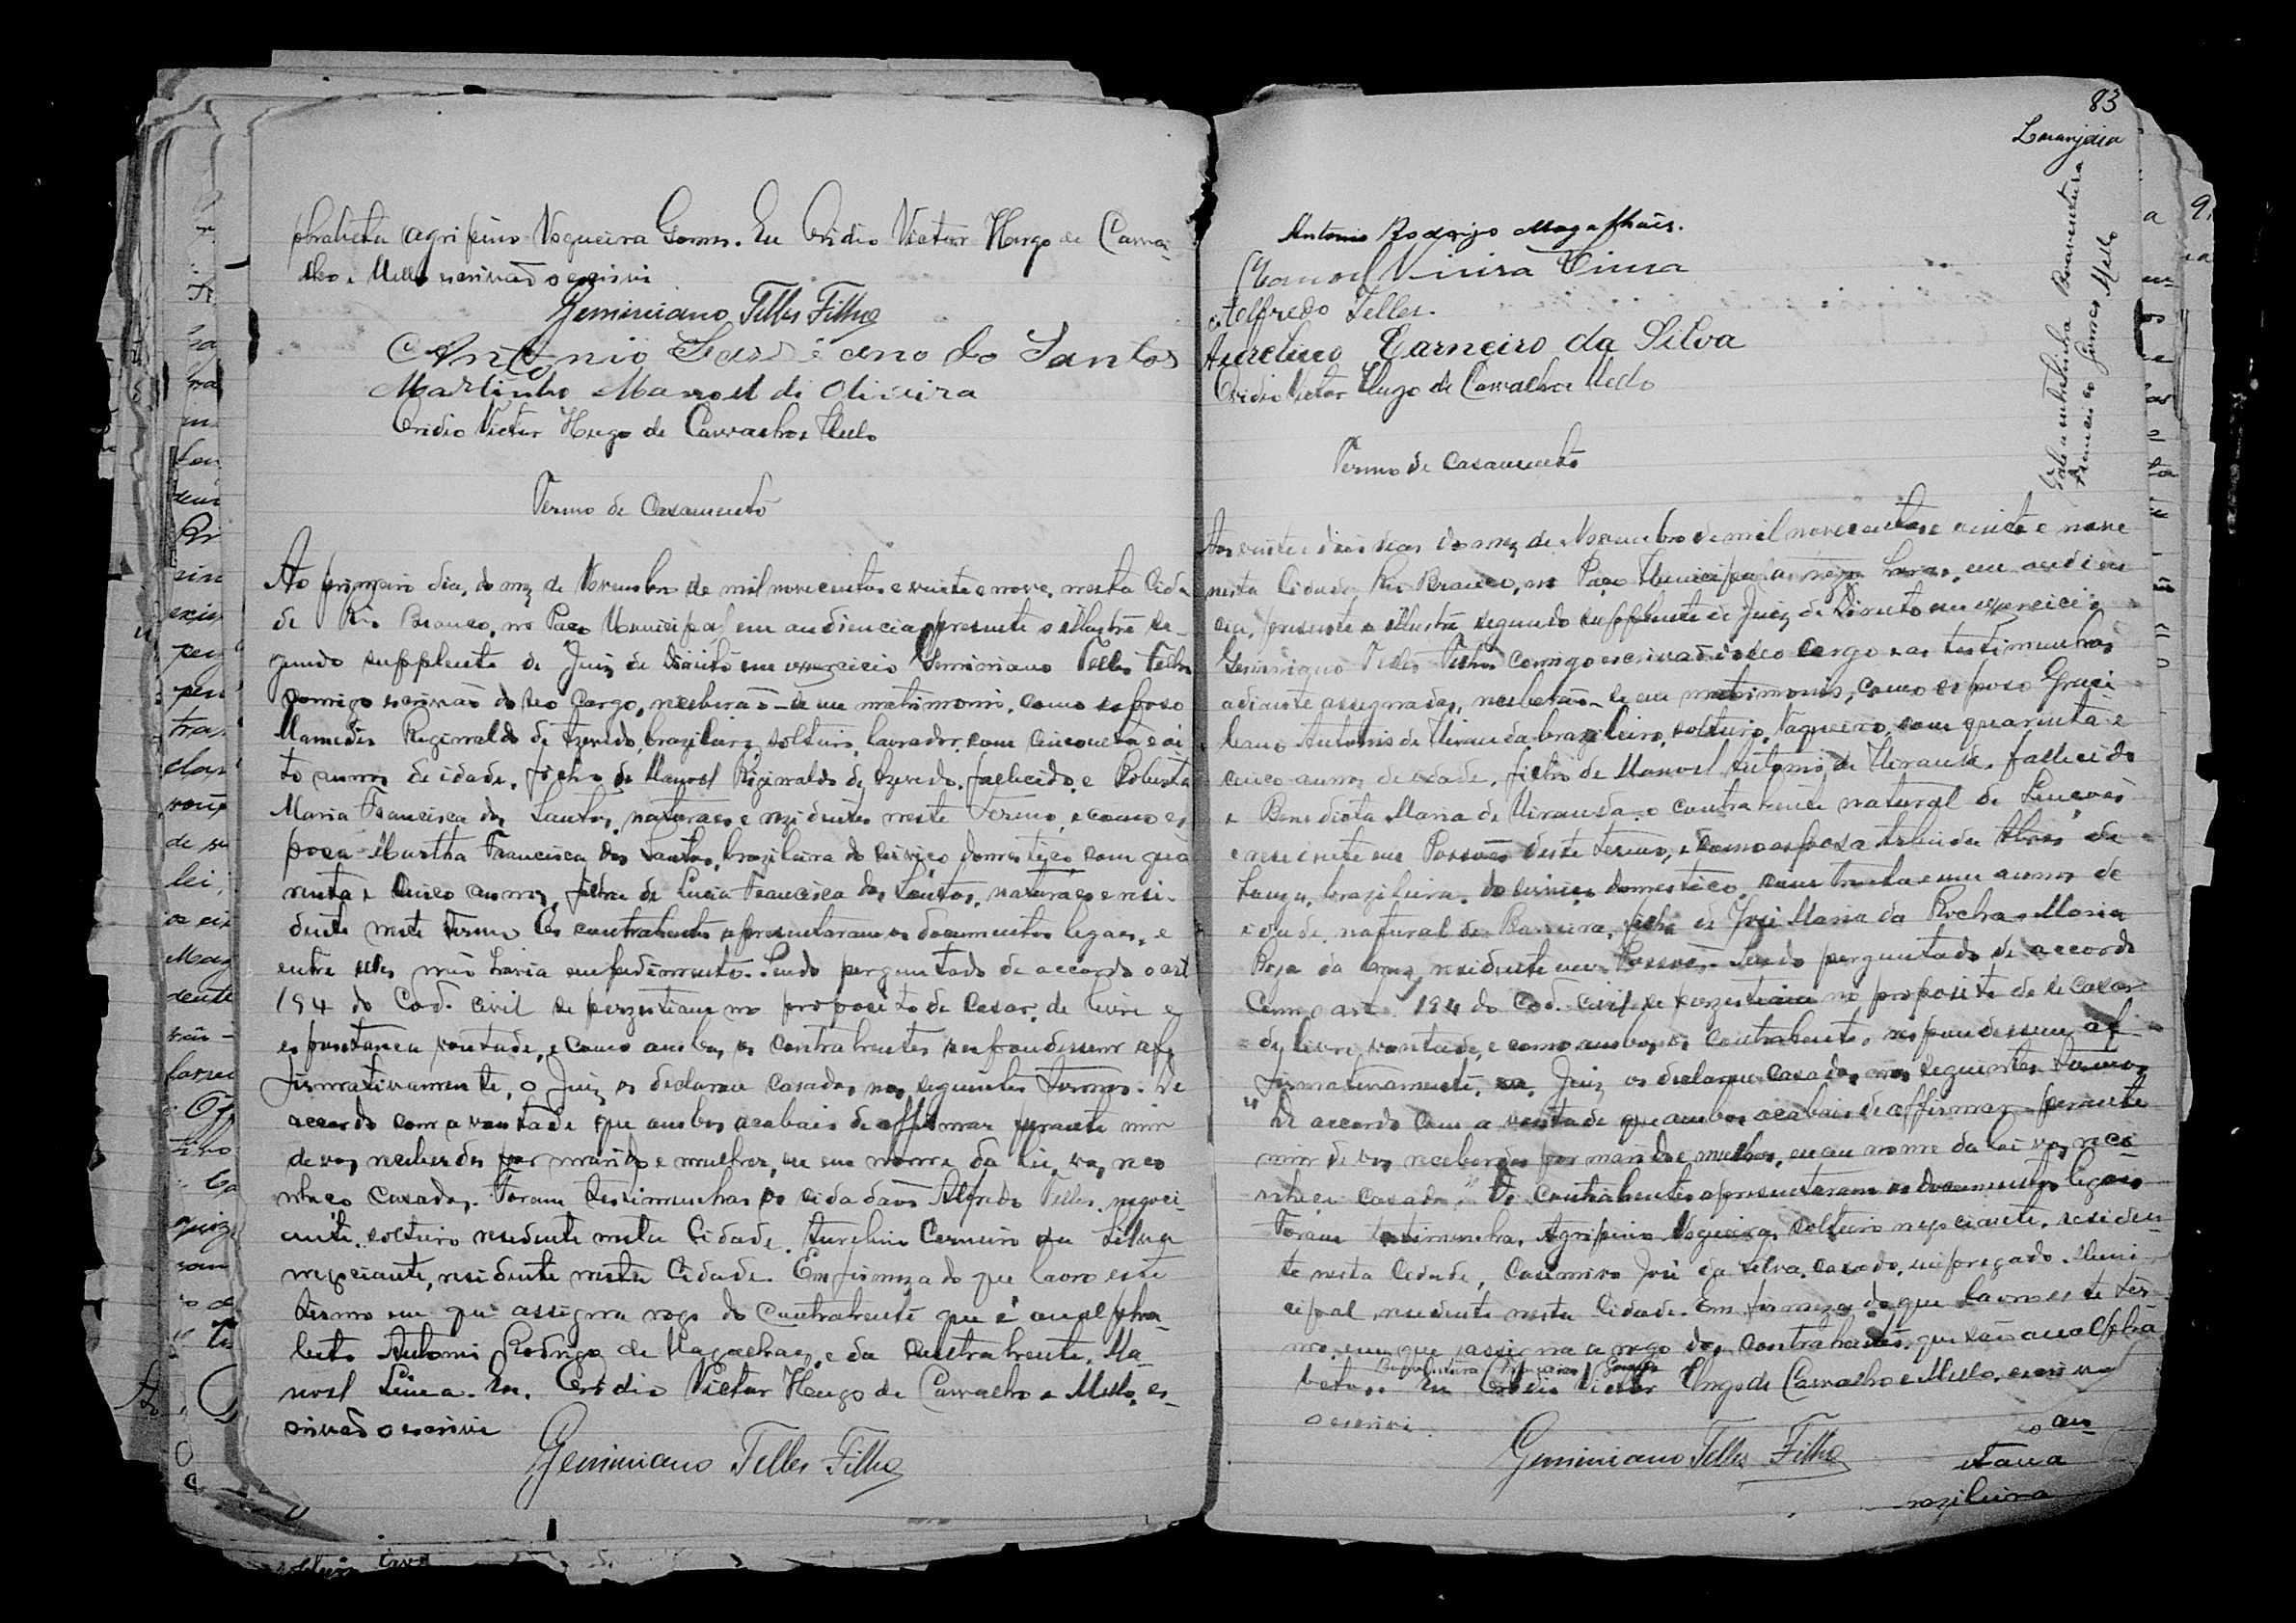 phabeta Agripino Nogueira Gomes. Eu Ovidio Victor Hugo de Carva-
lho e Mello escrivão o escrivi
Geminiano Telles Filho
Antonio ano do Santos
Martinho Manoel di Oliveira
Ovidio Victor Hugo de Carvalho e Mello
Termo de Casamento
Ao primeiro dia, do mez de Novembro de mil novecentos e vinte e nove, nesta Cida
de Rio Branco, no Paço Municipal em audiencia, presente o illustre se-
gundo supplente de Juiz de Direito em exercicio Geminiano Telles Filho
comigo escrivão do seo Cargo, receberão-se em matrimonio, como esposo
Mamedes Reginaldo de Azevedo, brazileiro, solteiro, lavrador, com cincoenta e oi
to annos de idade, filho de Manoel Reginaldo de Azevedo, fallecido, e Roberta
Maria Francisca dos Santos, naturaes e rezidentes neste Termo, e como es
posa Martha Francisca dos Santos, brazileira do serviço domestico, com qua
renta e cinco annos, filha de Lucia Francisca dos Santos, naturaes e resi-
dente neste termo Os contrahentes apresentaram os documentos legaes, e
entre elles não havia empedimento. Sendo perguntado de accordo o art
194 do Cod. civil se perzestiam no proposito de casar, de livre e
espontanea vontade, e como ambos os contrahentes respondessem afe
firmativamente, o Juiz os declarou casados, nos seguintes termos. De
accordo com a vontade que ambos acabais de affirmar perante mim
de vos receberdes por marido e mulher, eu em nome da lei, vos reco
nheço casados. Foram testimunhas os cidadãos Alfredo Telles, negoci
ante, solteiro residente nesta Cidade, Aurelino Carneiro da Silva
negociante, residente nesta Cidade. Em firmeza do que lavro este
termo em que assigna rogo do contrahente que é analpha-
beto Antonio Rodrigo de Magalhaes, e da contrahente, Ma-
noel Lima. Eu, Ovidio Victor Hugo de Carvalho e Mello, es-
crivão o escrivi
Geminiano Telles Filho
83
Laranjeira
Boaventura
Francisco Gomes Mello
Antonio Rodrigo Magalhães.
Manoel Vieira Lima
Alfredo Telles.
Aurelino Carneiro da Silva
Ovidio Victor Hugo de Carvalho e Mello
Termo de Casamento
Aos vinte e dois dias do mez de Novembro de mil novecentos e vinte e nove
nesta Cidade Rio Branco, no Paço Municipal as horas, em audien
cia, presente o illustre segundo supplente de Juiz de Direito em exercicio
Geminiano Telles Filho comigo escrivão do seo Cargo e as testimunhas
adiante assignadas, receberão-se em matrimonio, como esposo Graci
liano Antonio de Miranda brazileiro, solteiro, vaqueiro, com quarenta e
cinco annos de edade, filho de Manoel Antonio de Miranda, fallecido
e Benedicta Maria de Miranda, o contrahente natural de Lençoes
e residente em deste termo, e como esposa Alves de
Souza, brazileira, do serviço domestico, com trinta e um annos de
edade, natural de Barreira, filha de José Maria da Rocha e Maria
Roza da Cruz, residente em Sendo perguntado de accordo
com o art. 194 do Cod. civil se perzestiam no proposito de se casar
de livre vontade, e como ambos os contrahentes, respondessem af
firmativamente, o Juiz os declarou casados, nos seguintes termos
"De accordo com a vontade que ambos acabais de affirmar perante
mim de vos receberdes por marido e mulher, eu em nome da lei vos reco-
nheço casados". Os contrahentes apresentaram os documentos legaes
Foram testimunha, Agripino Nogueira, solteiro negociante, residen
te nesta Cidade, Casemiro José da Silva, casado, empregado Muni-
cipal, residente nesta Cidade. Em firmeza do que lavro este ter-
mo, em que assigna a rogo dos contrahentes, que são analpha
Boaventura Francisco Gomes
betos. Eu Ovidio Victor Hugo de Carvalho e Mello, escrivão
o escrivi
Geminiano Telles Filho